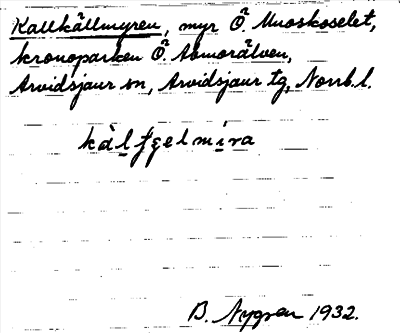 Kallkällmyren, myr Ö. Muoskoselet,
kronoparken Ö. Abmorälven,
Arvidsjaur sn, Arvidsjaur tg, Norrb. l.
kàlt̯ɕelmíra
B. Nygren 1932.